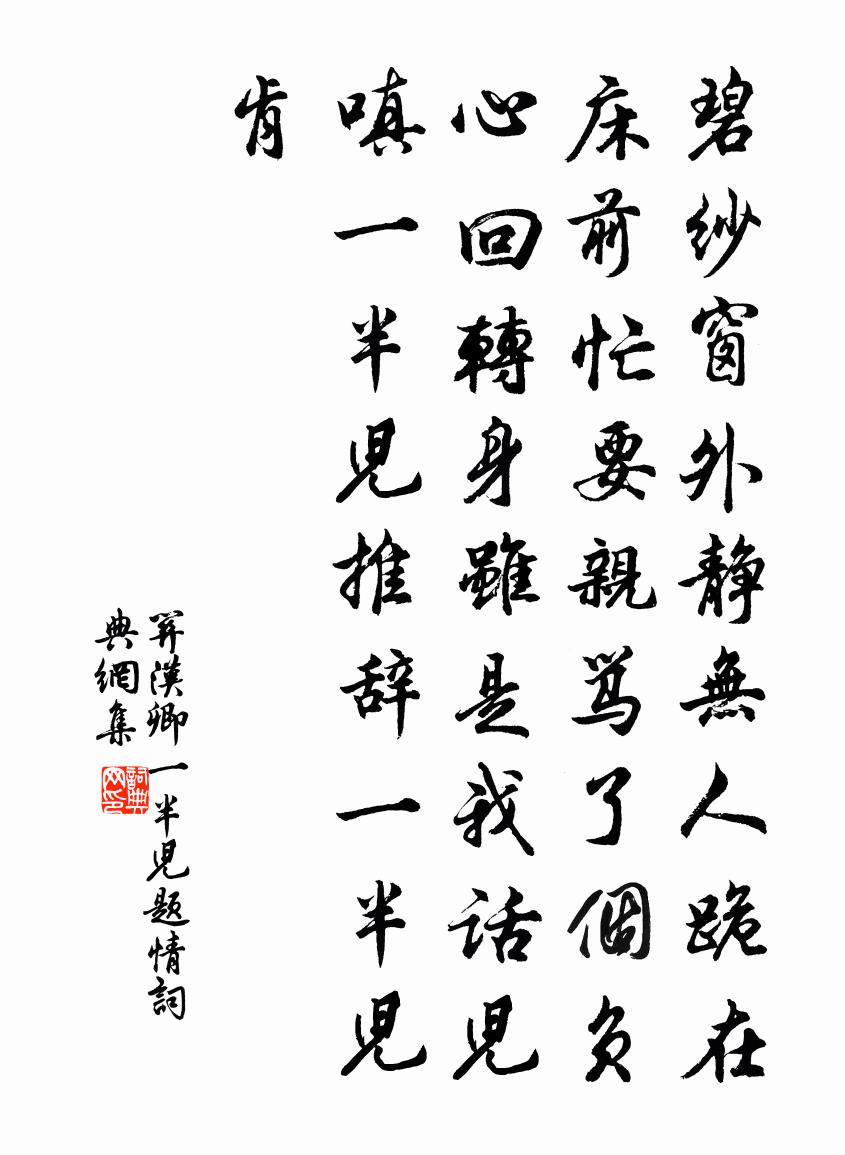 碧紗窗外靜無人跪在
床前忙要親罵了個負
心回轉身雖是我話兒
嗔一半兒推辞一半兒
肯
關漢卿一半兒題情詞
典網集
詞典网印